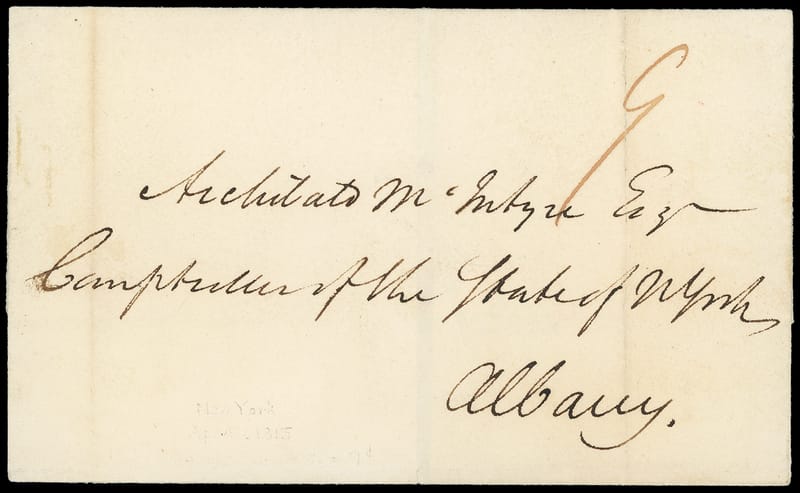 9
Archibald McIntyre Esqr
Comptroller of the State of N York
Albany.
New York
1815